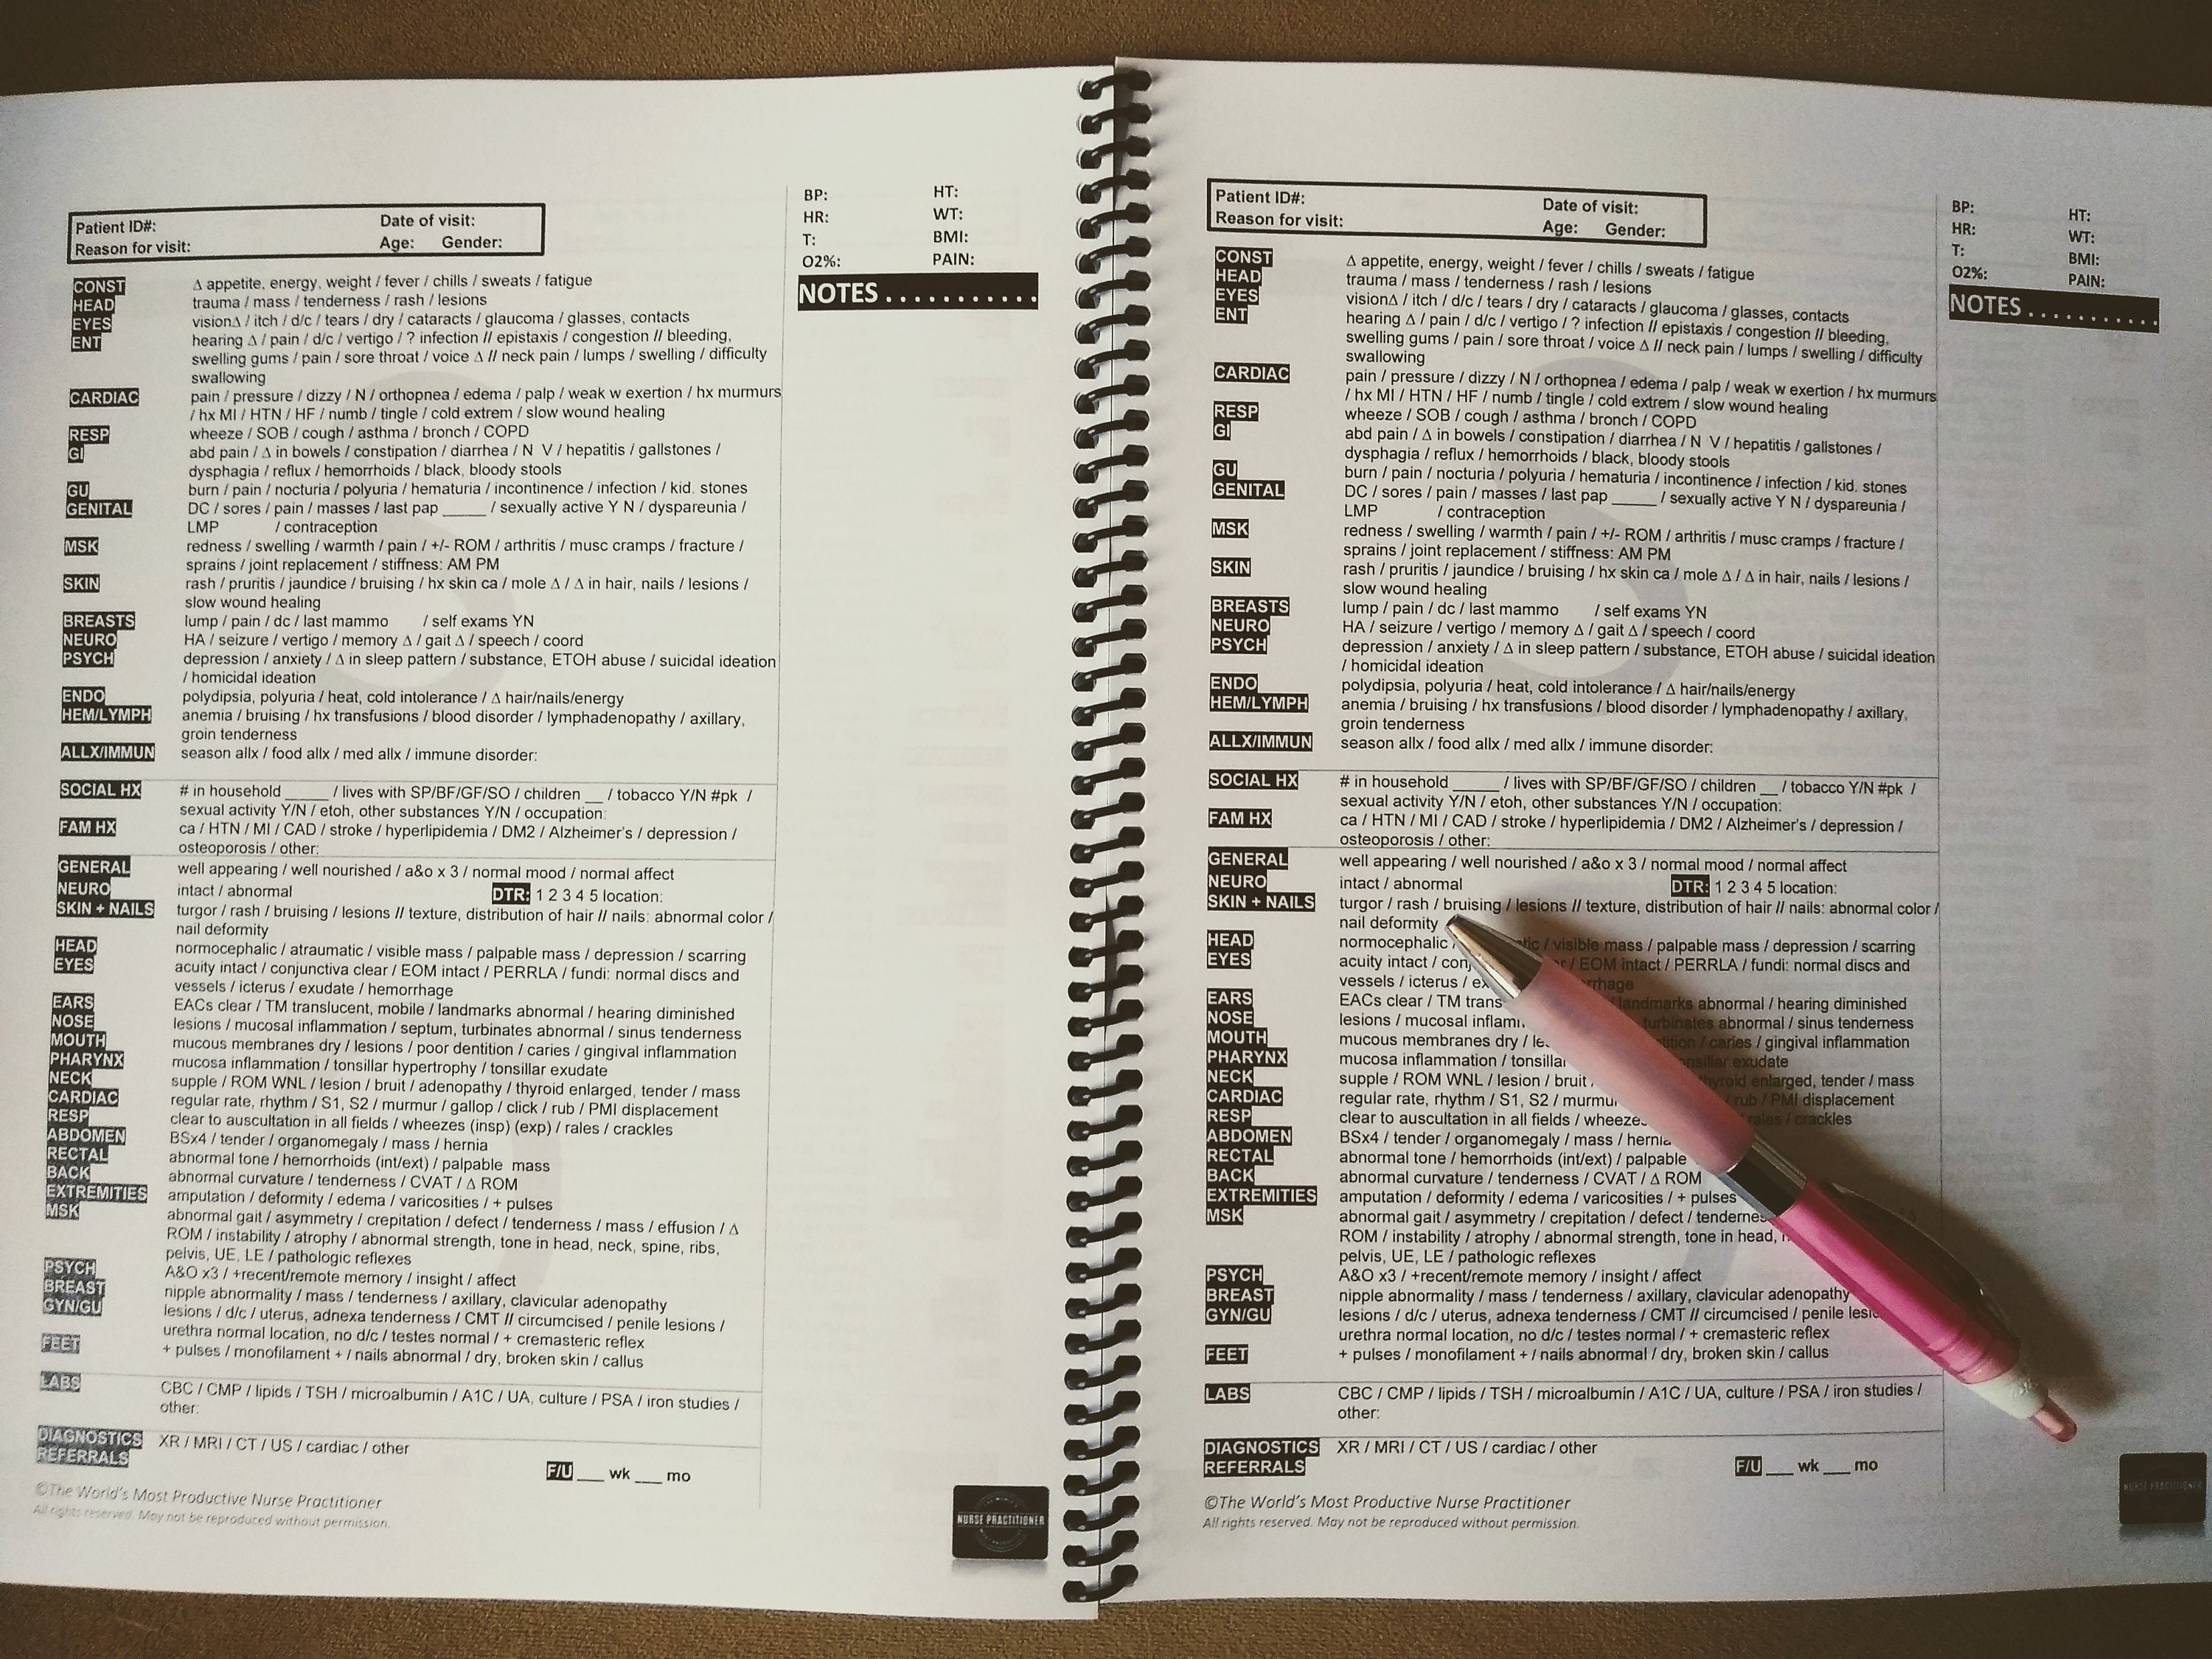 Patient ID#: Date of visit:
Reason for visit: Age: Gender:
BP: HT:
HR: WT:
T: BMI:
O2%: PAIN:
NOTES . . . . . . . . . . .
CONST Δ appetite, energy, weight / fever / chills / sweats / fatigue
HEAD trauma / mass / tenderness / rash / lesions
EYES visionΔ / itch / d/c / tears / dry / cataracts / glaucoma / glasses, contacts
ENT hearing Δ / pain / d/c / vertigo / ? infection // epistaxis / congestion // bleeding,
swelling gums / pain / sore throat / voice Δ // neck pain / lumps / swelling / difficulty
swallowing
CARDIAC pain / pressure / dizzy / N / orthopnea / edema / palp / weak w exertion / hx murmurs
/ hx MI / HTN / HF / numb / tingle / cold extrem / slow wound healing
RESP wheeze / SOB / cough / asthma / bronch / COPD
GI abd pain / Δ in bowels / constipation / diarrhea / N V / hepatitis / gallstones /
dysphagia / reflux / hemorrhoids / black, bloody stools
GU burn / pain / nocturia / polyuria / hematuria / incontinence / infection / kid. stones
GENITAL DC / sores / pain / masses / last pap _____ / sexually active Y N / dyspareunia /
LMP / contraception
MSK redness / swelling / warmth / pain / +/- ROM / arthritis / musc cramps / fracture /
sprains / joint replacement / stiffness: AM PM
SKIN rash / pruritis / jaundice / bruising / hx skin ca / mole Δ / Δ in hair, nails / lesions /
slow wound healing
BREASTS lump / pain / dc / last mammo / self exams YN
NEURO HA / seizure / vertigo / memory Δ / gait Δ / speech / coord
PSYCH depression / anxiety / Δ in sleep pattern / substance, ETOH abuse / suicidal ideation
/ homicidal ideation
ENDO polydipsia, polyuria / heat, cold intolerance / Δ hair/nails/energy
HEM/LYMPH anemia / bruising / hx transfusions / blood disorder / lymphadenopathy / axillary,
groin tenderness
ALLX/IMMUN season allx / food allx / med allx / immune disorder:
SOCIAL HX # in household _____ / lives with SP/BF/GF/SO / children __ / tobacco Y/N #pk /
sexual activity Y/N / etoh, other substances Y/N / occupation:
FAM HX ca / HTN / MI / CAD / stroke / hyperlipidemia / DM2 / Alzheimer's / depression /
osteoporosis / other:
GENERAL well appearing / well nourished / a&o x 3 / normal mood / normal affect
NEURO intact / abnormal DTR: 1 2 3 4 5 location:
SKIN + NAILS turgor / rash / bruising / lesions // texture, distribution of hair // nails: abnormal color /
nail deformity
HEAD normocephalic / atraumatic / visible mass / palpable mass / depression / scarring
EYES acuity intact / conjunctiva clear / EOM intact / PERRLA / fundi: normal discs and
vessels / icterus / exudate / hemorrhage
EARS EACs clear / TM translucent, mobile / landmarks abnormal / hearing diminished
NOSE lesions / mucosal inflammation / septum, turbinates abnormal / sinus tenderness
MOUTH mucous membranes dry / lesions / poor dentition / caries / gingival inflammation
PHARYNX mucosa inflammation / tonsillar hypertrophy / tonsillar exudate
NECK supple / ROM WNL / lesion / bruit / adenopathy / thyroid enlarged, tender / mass
CARDIAC regular rate, rhythm / S1, S2 / murmur / gallop / click / rub / PMI displacement
RESP clear to auscultation in all fields / wheezes (insp) (exp) / rales / crackles
ABDOMEN BSx4 / tender / organomegaly / mass / hernia
RECTAL abnormal tone / hemorrhoids (int/ext) / palpable mass
BACK abnormal curvature / tenderness / CVAT / Δ ROM
EXTREMITIES amputation / deformity / edema / varicosities / + pulses
MSK abnormal gait / asymmetry / crepitation / defect / tenderness / mass / effusion / Δ
ROM / instability / atrophy / abnormal strength, tone in head, neck, spine, ribs,
pelvis, UE, LE / pathologic reflexes
PSYCH A&O x3 / +recent/remote memory / insight / affect
BREAST nipple abnormality / mass / tenderness / axillary, clavicular adenopathy
GYN/GU lesions / d/c / uterus, adnexa tenderness / CMT // circumcised / penile lesions /
urethra normal location, no d/c / testes normal / + cremasteric reflex
FEET + pulses / monofilament + / nails abnormal / dry, broken skin / callus
LABS CBC / CMP / lipids / TSH / microalbumin / A1C / UA, culture / PSA / iron studies /
other:
DIAGNOSTICS XR / MRI / CT / US / cardiac / other
REFERRALS F/U ___ wk ___ mo
©The World's Most Productive Nurse Practitioner
All rights reserved. May not be reproduced without permission.
NURSE PRACTITIONER
Patient ID#: Date of visit:
Reason for visit: Age: Gender:
BP: HT:
HR: WT:
T: BMI:
O2%: PAIN:
NOTES . . . . . . . . . . .
CONST Δ appetite, energy, weight / fever / chills / sweats / fatigue
HEAD trauma / mass / tenderness / rash / lesions
EYES visionΔ / itch / d/c / tears / dry / cataracts / glaucoma / glasses, contacts
ENT hearing Δ / pain / d/c / vertigo / ? infection // epistaxis / congestion // bleeding,
swelling gums / pain / sore throat / voice Δ // neck pain / lumps / swelling / difficulty
swallowing
CARDIAC pain / pressure / dizzy / N / orthopnea / edema / palp / weak w exertion / hx murmurs
/ hx MI / HTN / HF / numb / tingle / cold extrem / slow wound healing
RESP wheeze / SOB / cough / asthma / bronch / COPD
GI abd pain / Δ in bowels / constipation / diarrhea / N V / hepatitis / gallstones /
dysphagia / reflux / hemorrhoids / black, bloody stools
GU burn / pain / nocturia / polyuria / hematuria / incontinence / infection / kid. stones
GENITAL DC / sores / pain / masses / last pap _____ / sexually active Y N / dyspareunia /
LMP / contraception
MSK redness / swelling / warmth / pain / +/- ROM / arthritis / musc cramps / fracture /
sprains / joint replacement / stiffness: AM PM
SKIN rash / pruritis / jaundice / bruising / hx skin ca / mole Δ / Δ in hair, nails / lesions /
slow wound healing
BREASTS lump / pain / dc / last mammo / self exams YN
NEURO HA / seizure / vertigo / memory Δ / gait Δ / speech / coord
PSYCH depression / anxiety / Δ in sleep pattern / substance, ETOH abuse / suicidal ideation
/ homicidal ideation
ENDO polydipsia, polyuria / heat, cold intolerance / Δ hair/nails/energy
HEM/LYMPH anemia / bruising / hx transfusions / blood disorder / lymphadenopathy / axillary,
groin tenderness
ALLX/IMMUN season allx / food allx / med allx / immune disorder:
SOCIAL HX # in household _____ / lives with SP/BF/GF/SO / children __ / tobacco Y/N #pk /
sexual activity Y/N / etoh, other substances Y/N / occupation:
FAM HX ca / HTN / MI / CAD / stroke / hyperlipidemia / DM2 / Alzheimer's / depression /
osteoporosis / other:
GENERAL well appearing / well nourished / a&o x 3 / normal mood / normal affect
NEURO intact / abnormal DTR: 1 2 3 4 5 location:
SKIN + NAILS turgor / rash / bruising / lesions // texture, distribution of hair // nails: abnormal color /
nail deformity
HEAD normocephalic / visible mass / palpable mass / depression / scarring
EYES acuity intact / EOM intact / PERRLA / fundi: normal discs and
vessels / icterus /
EARS EACs clear / TM landmarks abnormal / hearing diminished
NOSE lesions / mucosal turbinates abnormal / sinus tenderness
MOUTH mucous membranes dry / caries / gingival inflammation
PHARYNX mucosa inflammation / exudate
NECK supple / ROM WNL / lesion / bruit thyroid enlarged, tender / mass
CARDIAC regular rate, rhythm / S1, S2 / / rub / PMI displacement
RESP clear to auscultation in all fields / rales / crackles
ABDOMEN BSx4 / tender / organomegaly / mass / hernia
RECTAL abnormal tone / hemorrhoids (int/ext) / palpable
BACK abnormal curvature / tenderness / CVAT / Δ ROM
EXTREMITIES amputation / deformity / edema / varicosities / + pulses
MSK abnormal gait / asymmetry / crepitation / defect /
ROM / instability / atrophy / abnormal strength, tone in head,
pelvis, UE, LE / pathologic reflexes
PSYCH A&O x3 / +recent/remote memory / insight / affect
BREAST nipple abnormality / mass / tenderness / axillary, clavicular adenopathy
GYN/GU lesions / d/c / uterus, adnexa tenderness / CMT // circumcised / penile
urethra normal location, no d/c / testes normal / + cremasteric reflex
FEET + pulses / monofilament + / nails abnormal / dry, broken skin / callus
LABS CBC / CMP / lipids / TSH / microalbumin / A1C / UA, culture / PSA / iron studies /
other:
DIAGNOSTICS XR / MRI / CT / US / cardiac / other
REFERRALS F/U ___ wk ___ mo
©The World's Most Productive Nurse Practitioner
All rights reserved. May not be reproduced without permission.
NURSE PRACTITIONER